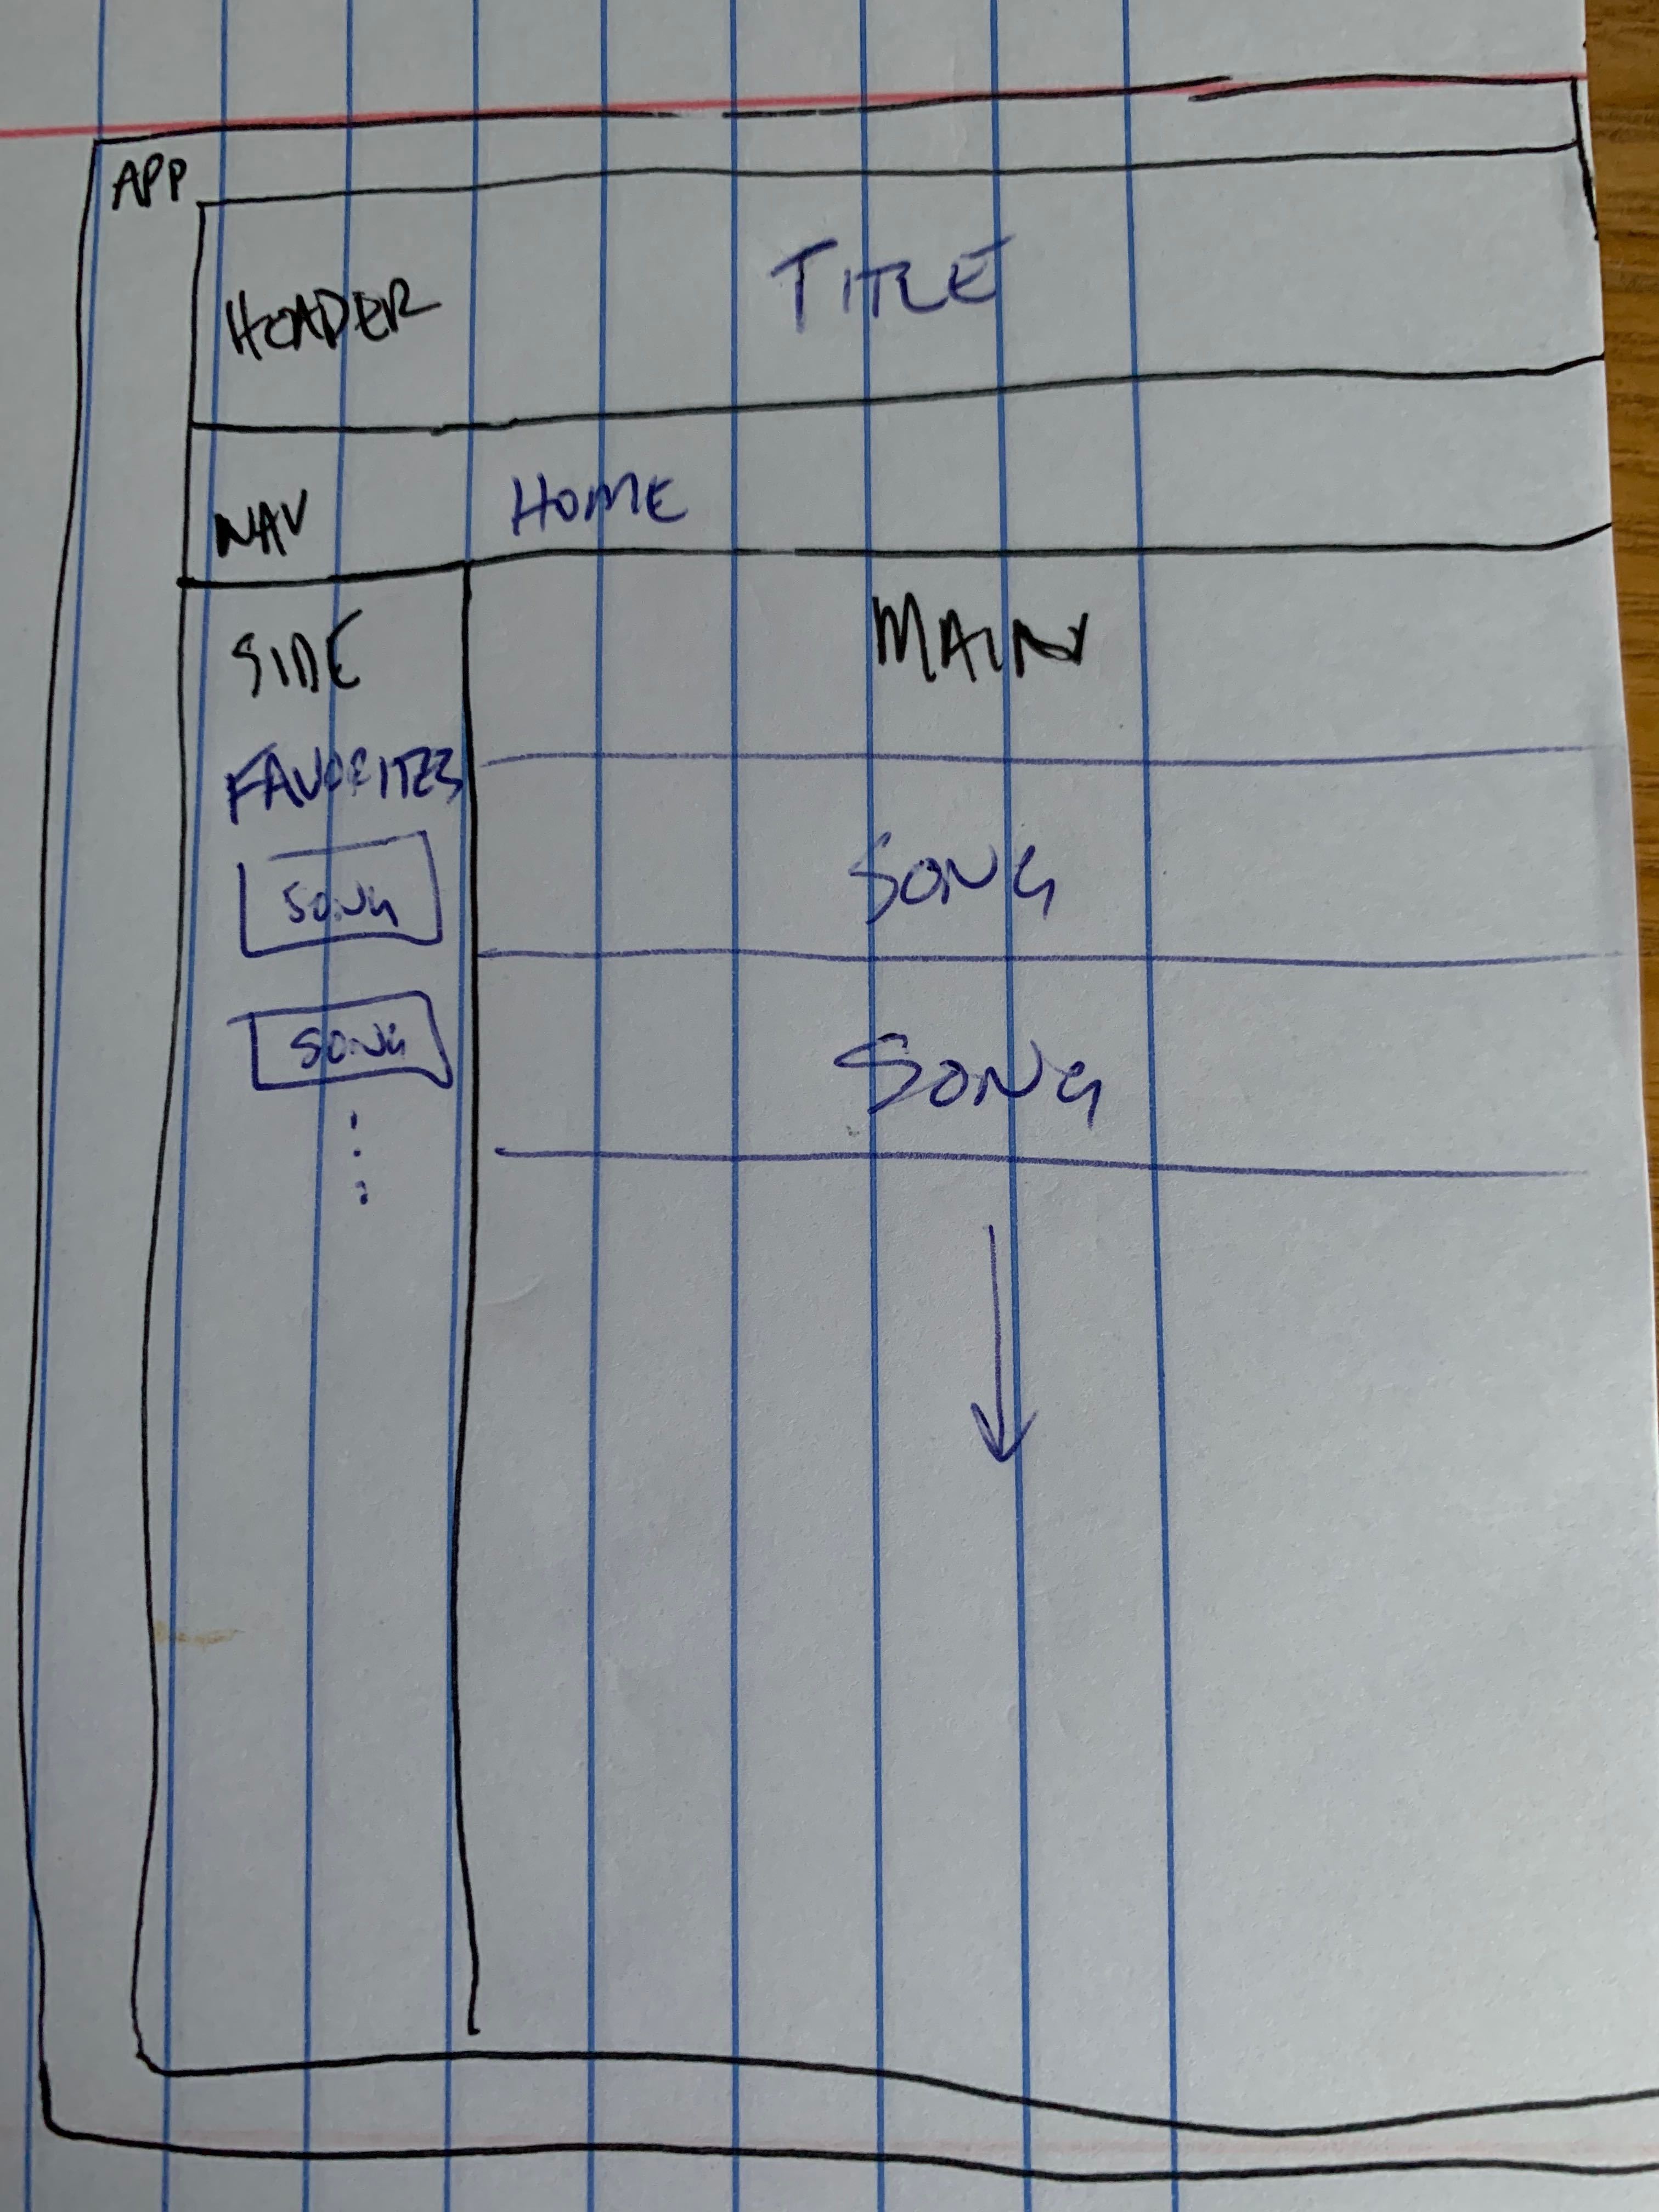 APP
HEADER TITLE
NAV HOME
SIDE MAIN
FAVORITES
SONG SONG
SONG SONG